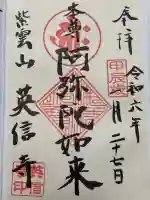 奉拝
令和六年
甲辰 一月二十七日
本尊
阿弥陀如来
紫雲山
英信寺